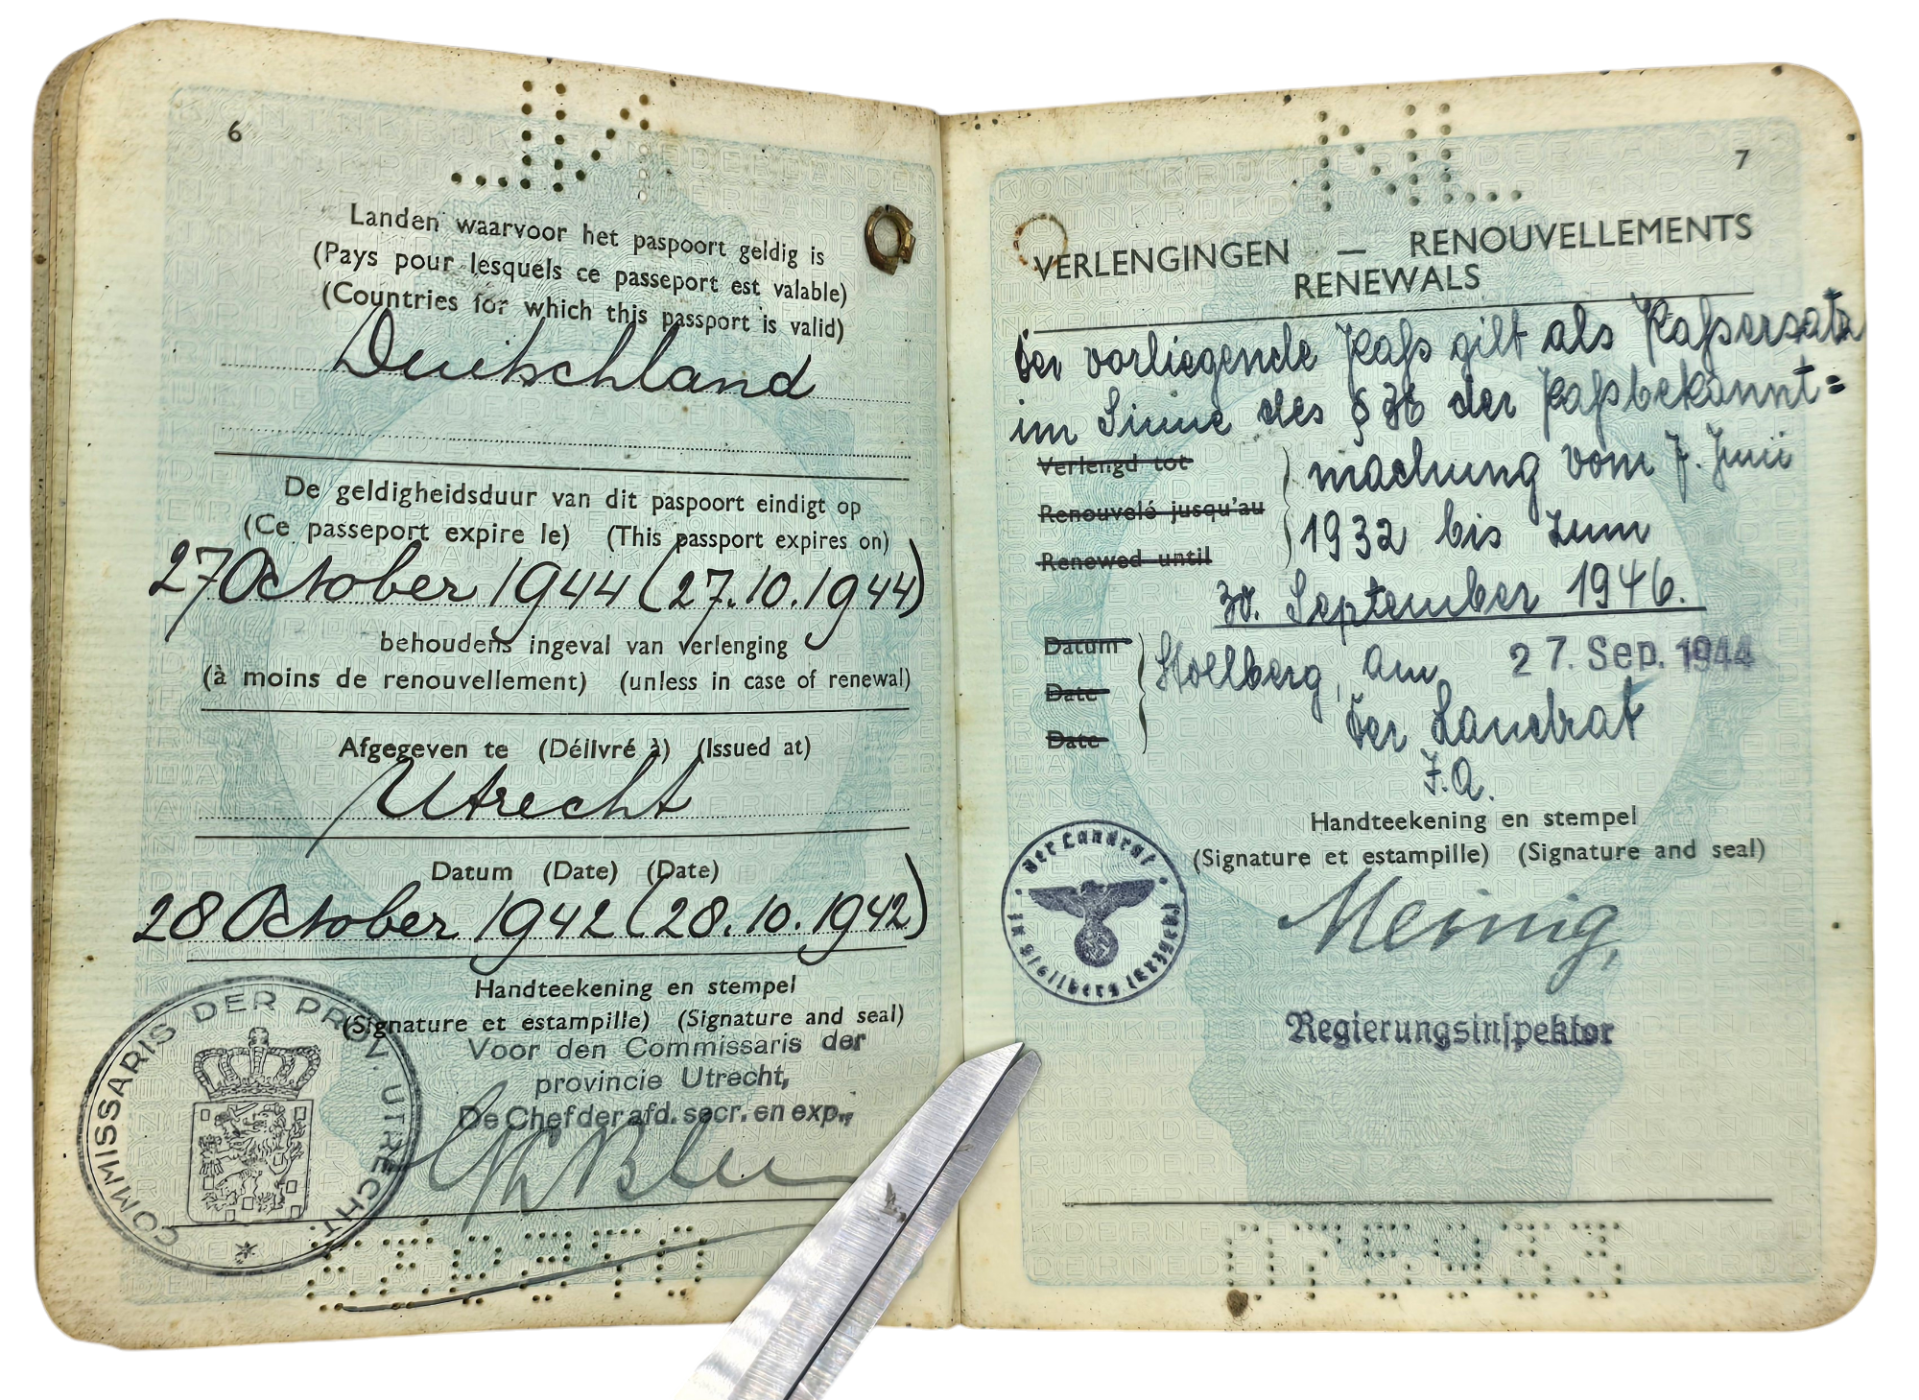 6
Landen waarvoor het paspoort geldig is
(Pays pour lesquels ce passeport est valable)
(Countries for which this passport is valid)
Deutschland
De geldigheidsduur van dit paspoort eindigt op
(Ce passeport expire le) (This passport expires on)
27 October 1944 (27.10.1944)
behoudens ingeval van verlenging
(à moins de renouvellement) (unless in case of renewal)
Afgegeven te (Délivré à) (Issued at)
Utrecht
Datum (Date) (Date)
28 October 1942 (28.10.1942)
Handteekening en stempel
(Signature et estampille) (Signature and seal)
Voor den Commissaris der
provincie Utrecht,
De Chef der afd. secr. en exp.,
COMMISSARIS DER PROV. UTRECHT.
7
VERLENGINGEN — RENOUVELLEMENTS
RENEWALS
Der vorliegende Paß gilt als Paßersatz
im Sinne des § 36 der Paßbekannt=
Verlengd tot
machung vom 7. Juni
Renouvelé jusqu'au
1932 bis zum
Renewed until
30. September 1946.
Datum
Stollberg, am 27. Sep. 1944
Date
Der Landrat
Date
I.A.
Handteekening en stempel
(Signature et estampille) (Signature and seal)
Der Landrat
in Stollberg (Erzgeb.)
Meinig,
Regierungsinspektor